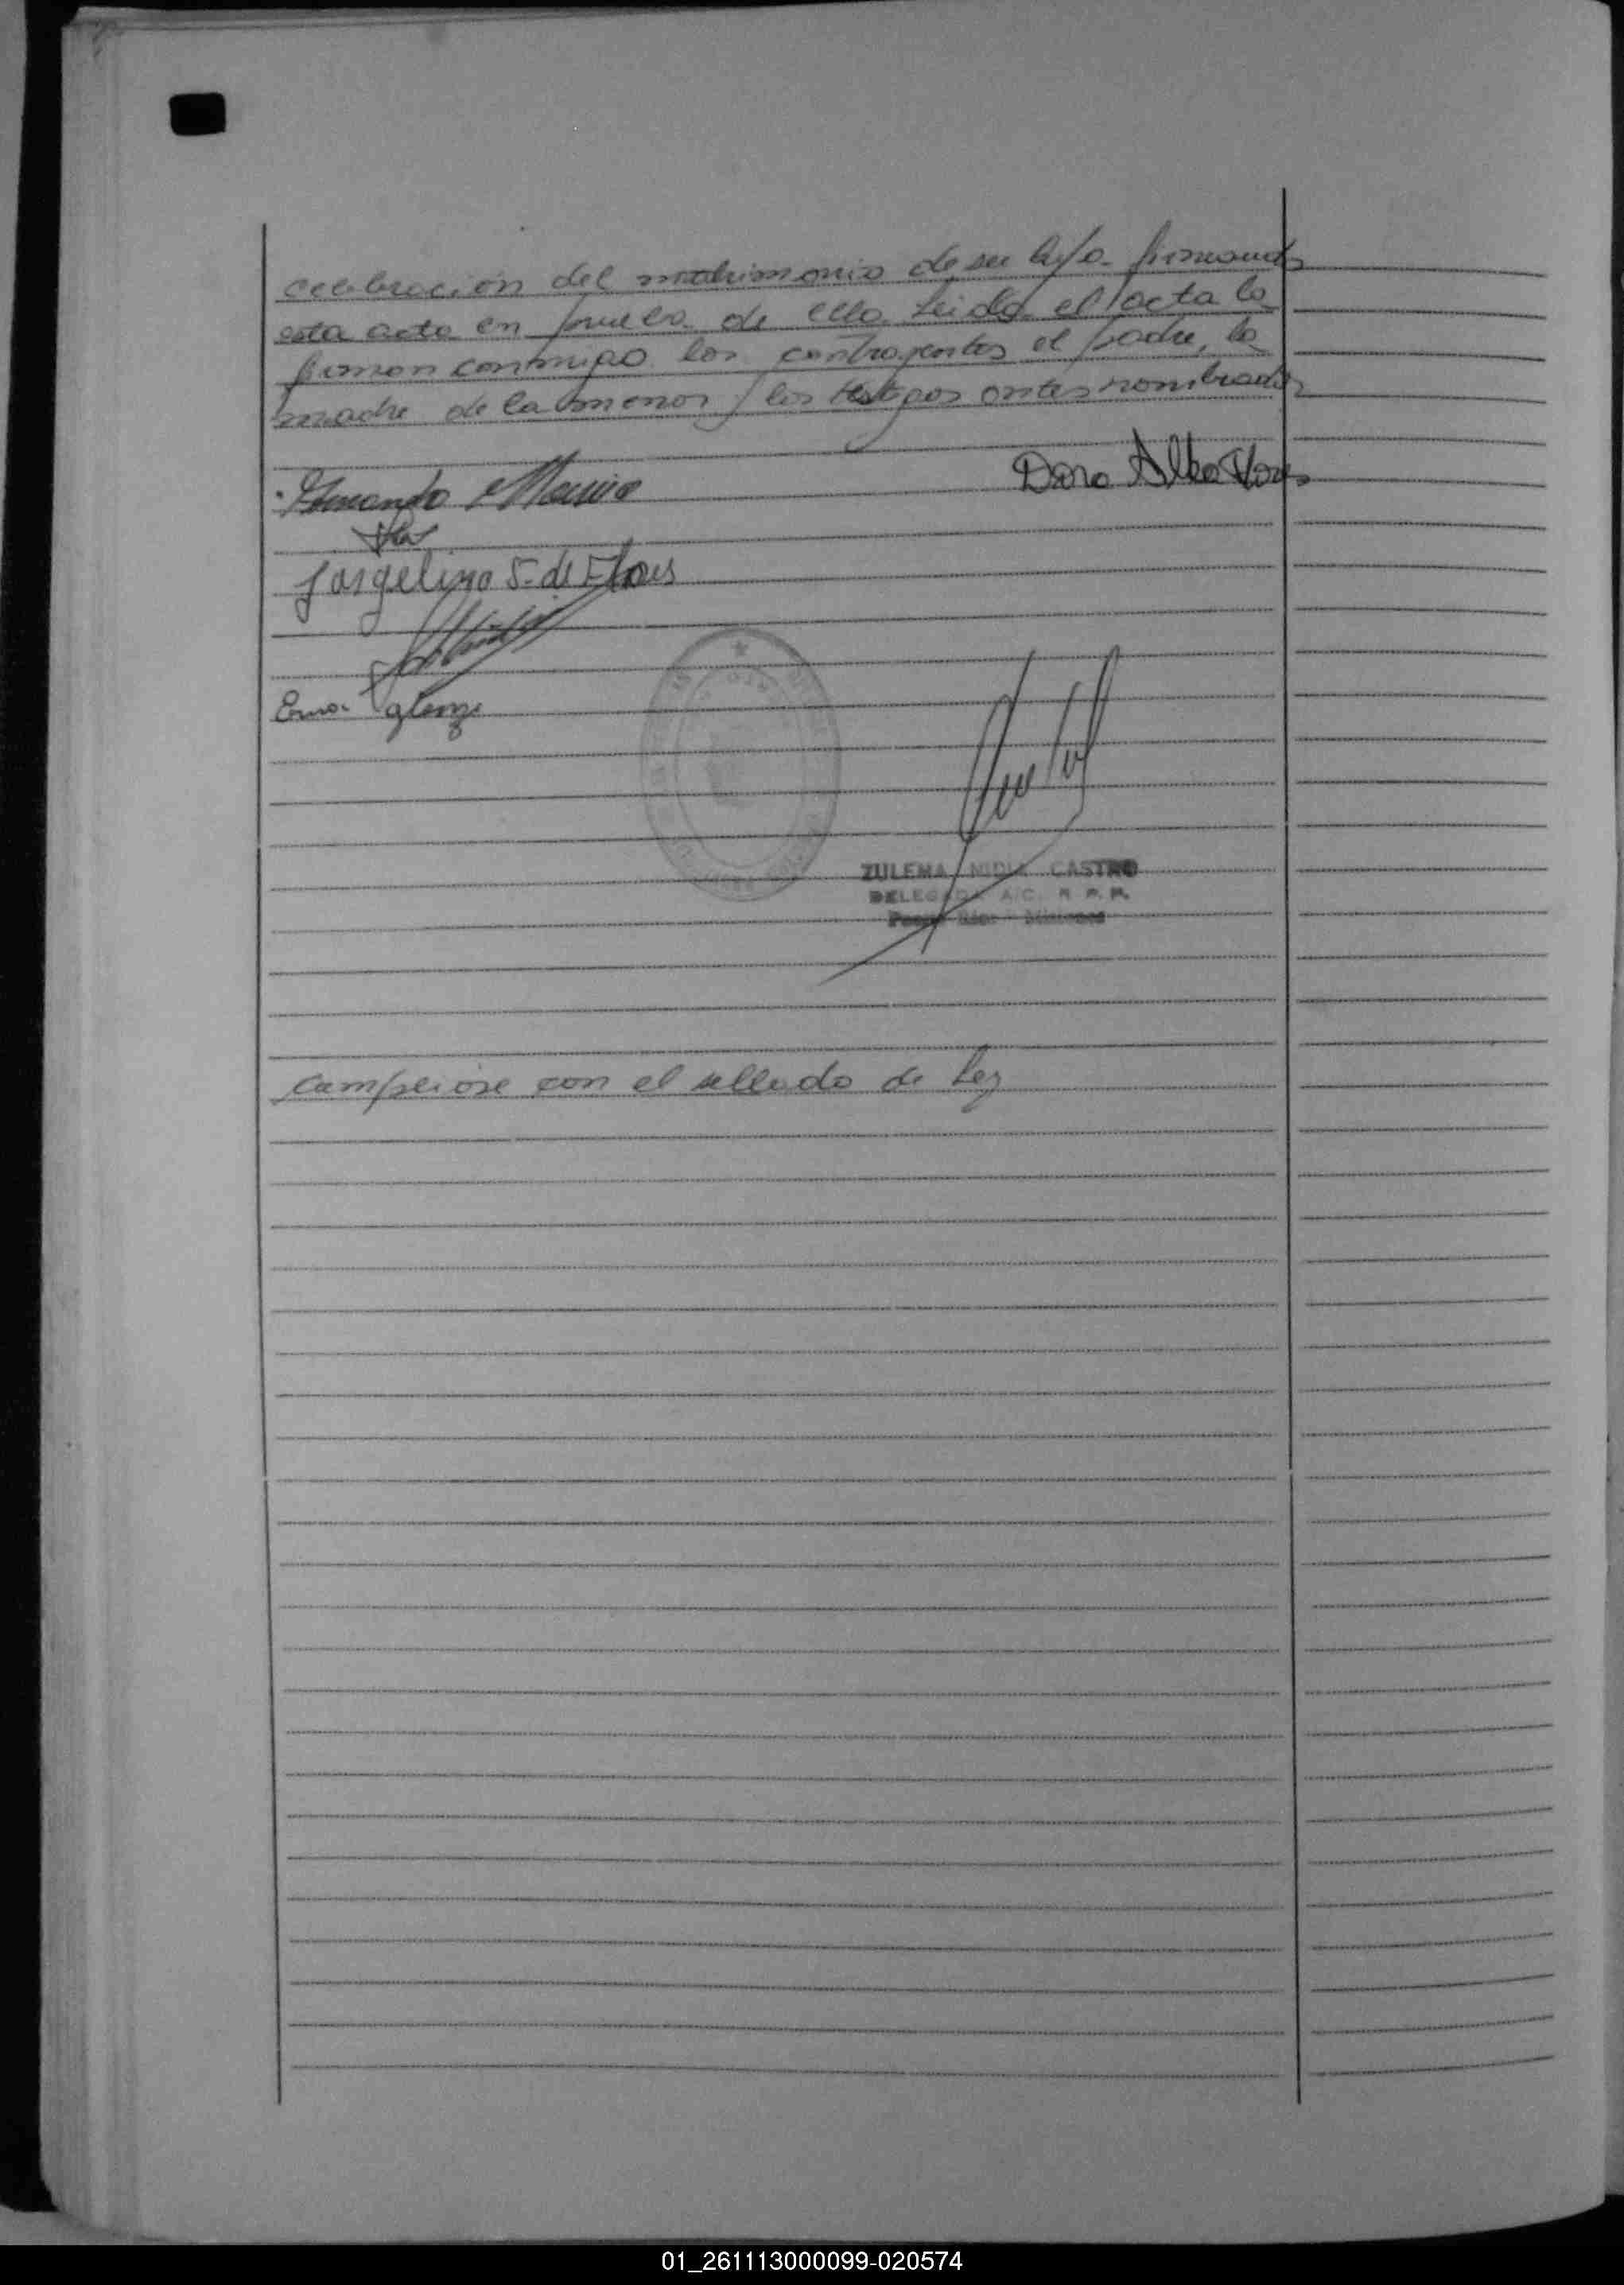 celebración del matrimonio de su hija firmando
esta acta en prueba de ello Leida el acta la
firman conmigo los contrayentes el padre, la
madre de la menor y los testigos antes nombrados
Dora Alba Flores
Jorgelina S. de Flores
Ema
ZULEMA NIDIA CASTRO
DELEGADA A/C. R. P. P.
Misiones
Cumpliose con el sellado de Ley
01_261113000099-020574